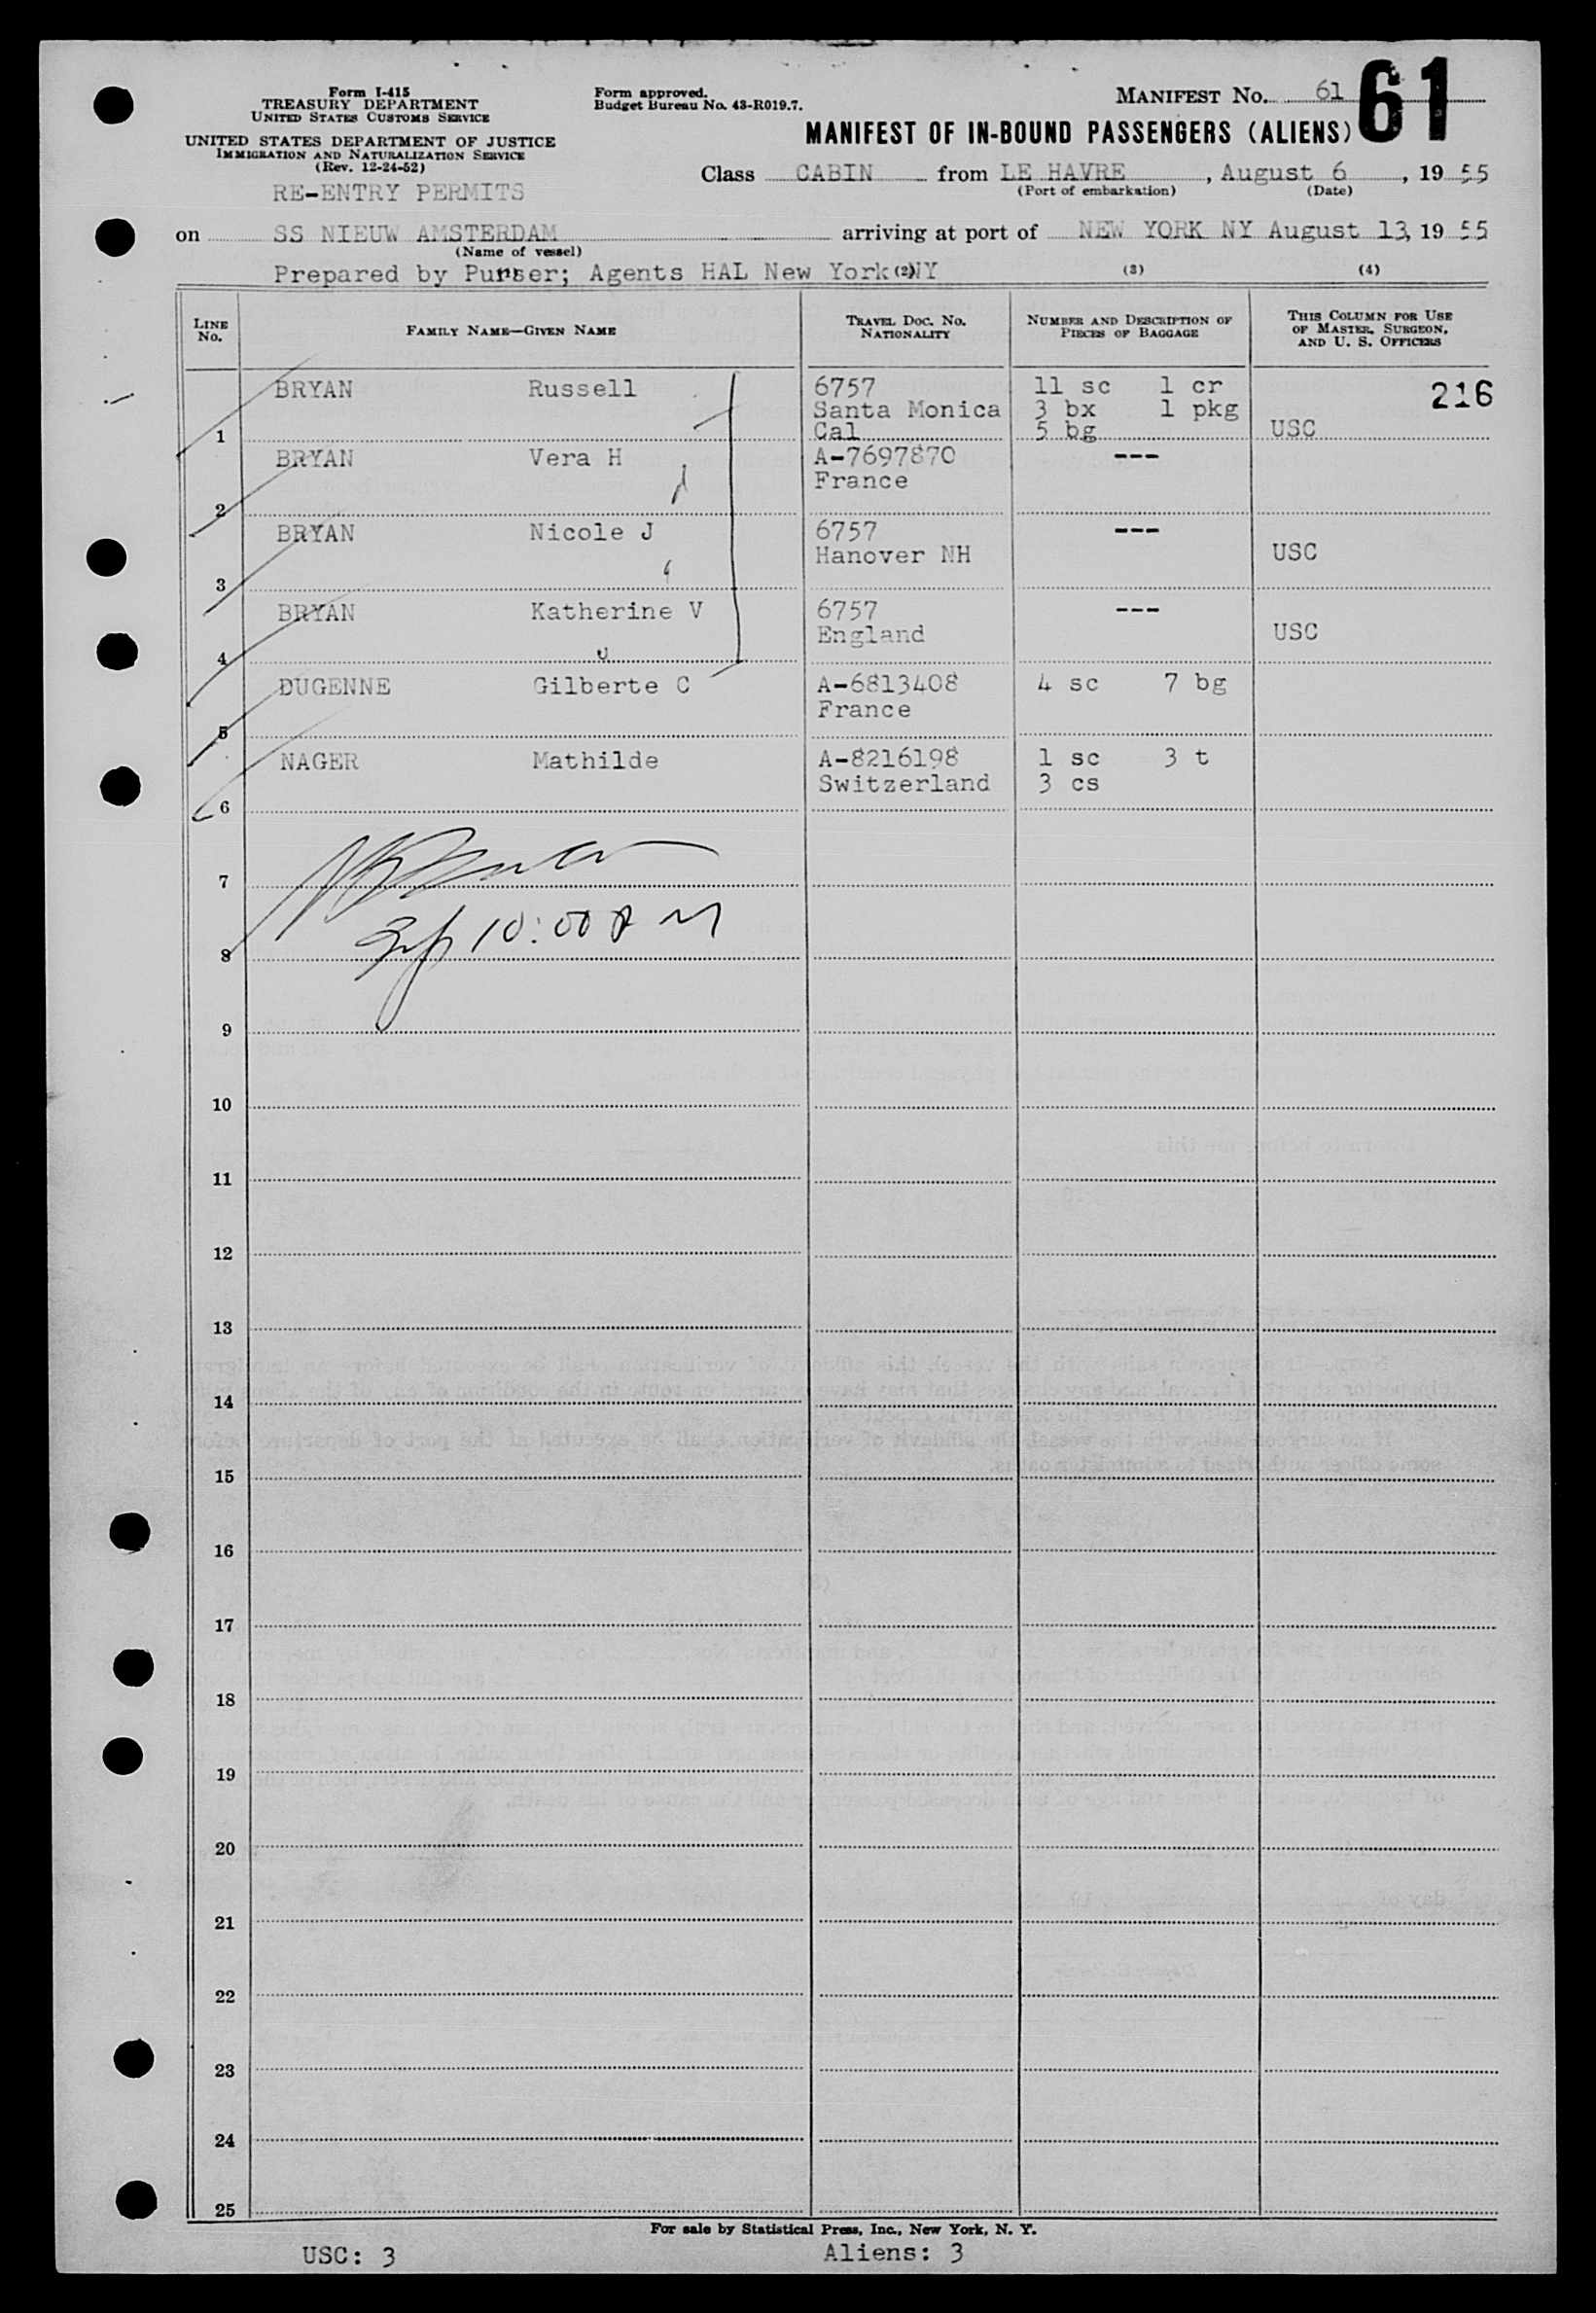 Form I-415
TREASURY DEPARTMENT
UNITED STATES CUSTOMS SERVICE
UNITED STATES DEPARTMENT OF JUSTICE
IMMIGRATION AND NATURALIZATION SERVICE
(Rev. 12-24-52)
RE-ENTRY PERMITS
Form approved.
Budget Bureau No. 43-R019.7.
MANIFEST NO. 61
61
MANIFEST OF IN-BOUND PASSENGERS (ALIENS)
Class CABIN from LE HAVRE, August 6, 1955
(Port of embarkation) (Date)
on SS NIEUW AMSTERDAM arriving at port of NEW YORK NY August 13, 1955
(Name of vessel)
Prepared by Purser; Agents HAL New York NY
(2) (3) (4)
LINE NO. FAMILY NAME—GIVEN NAME TRAVEL DOC. NO. NATIONALITY NUMBER AND DESCRIPTION OF PIECES OF BAGGAGE THIS COLUMN FOR USE OF MASTER, SURGEON, AND U. S. OFFICERS
BRYAN Russell 6757 11 sc 1 cr 216
Santa Monica 3 bx 1 pkg
1 Cal 5 bg USC
BRYAN Vera H A-7697870 ---
France
2
BRYAN Nicole J 6757 ---
Hanover NH USC
3
BRYAN Katherine V 6757 ---
England USC
4
DUGENNE Gilberte C A-6813408 4 sc 7 bg
France
5
NAGER Mathilde A-8216198 1 sc 3 t
Switzerland 3 cs
6
7
8 10:00 A M
9
10
11
12
13
14
15
16
17
18
19
20
21
22
23
24
25
For sale by Statistical Press, Inc., New York, N. Y.
USC: 3 Aliens: 3